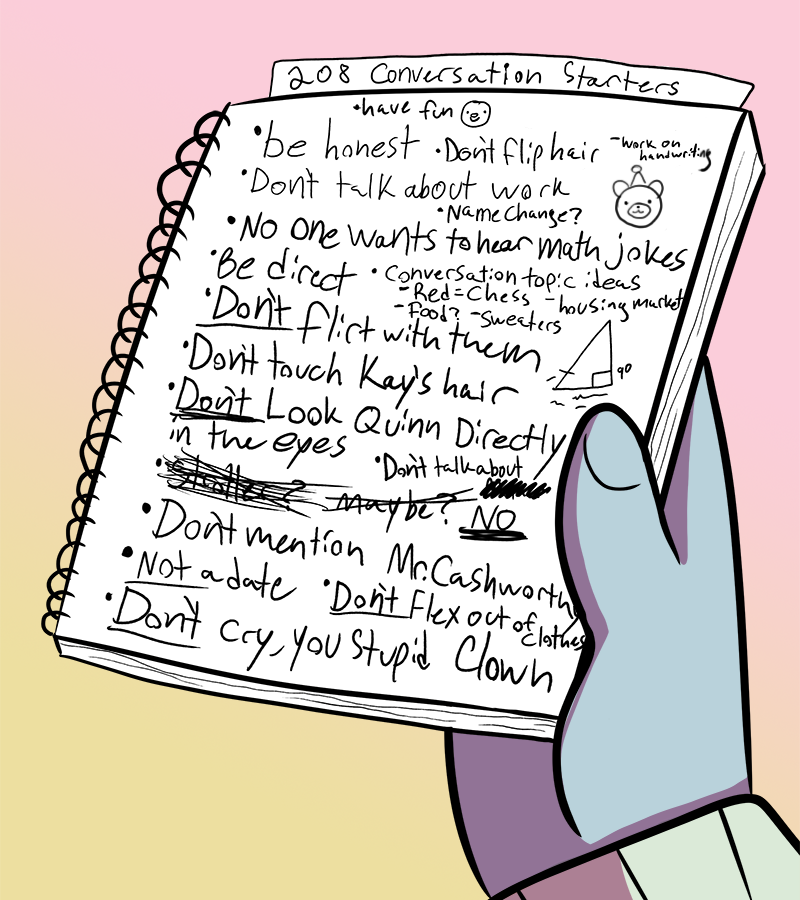 208 Conversation Starters
•have fun
•be honest •Don't flip hair -work on handwriting
•Don't talk about work
•Name Change?
•No one wants to hear math jokes
•Be direct •Conversation topic ideas
-Red=Chess -housing market
-Food? -Sweaters
•Don't flirt with them
90
•Don't touch Kay's hair
•Don't Look Quinn Directly
in the eyes
•Don't talk about
Maybe? NO
•Don't mention Mr. Cashworth
•Not a date •Don't Flex out of
clothes
•Don't cry, you stupid Clown